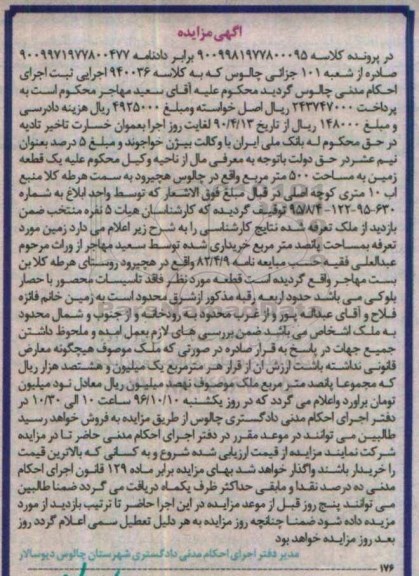 آگهی مزایده
در پرونده کلاسه ۹۰۰۹۹۸۱۹۷۷۸۰۰۰۹۵ برابر دادنامه ۹۰۰۹۹۷۱۹۷۷۸۰۰۴۷۷
صادره از شعبه ۱۰۱ جزائی چالوس که به کلاسه ۹۴۰۰۳۶ اجرایی ثبت اجرای
احکام مدنی چالوس گردید محکوم علیه آقای سعید مهاجر محکوم است به
پرداخت ۲۴۳۷۴۷۰۰۰ ریال اصل خواسته ومبلغ ۴۹۲۵۰۰۰ ریال هزینه دادرسی
و مبلغ ۱۴۸۰۰۰ ریال از تاریخ ۹۰/۴/۱۳ لغایت روز اجرا بعموان خسارت تاخیر تادیه
در حق محکوم له بانک ملی ایران با وکالت بیژن خواجوند و مبلغ ۵ درصد بعنوان
نیم عشر در حق دولت باتوجه به معرفی مال از ناحیه وکیل محکوم علیه یک قطعه
زمین به مساحت ۵۰۰ متر مربع واقع در چالوس هچیرود به سمت هرطه کلا منبع
اب ۱۰ متری کوچه اصلی در قبال مبلغ فوق الاشعار که توسط واحد ابلاغ به شماره
۶۳۰-۹۵-۱۲۲-۹۵۷۸/۴ توقیف گردیده که کارشناسان هیات ۵ نفره منتخب ضمن
بازدید از ملک تعرفه شده نتایج کارشناسی را به شرح زیر اعلام می دارد زمین مورد
تعرفه بمساحت پانصد متر مربع خریداری شده توسط سعید مهاجر از وراث مرحوم
عبدالعلی فقیه حسب مبایعه نامه ۸۲/۴/۹ واقع در هچیرود روستای هرطه کلا بن
بست مهاجر واقع گردیده است قطعه مورد نظر فاقد تاسیسات محصور با حصار
بلوکی می باشد حدود اربعه رقبه مذکور ازشرق محدود است به زمین خانم فائزه
فلاح و آقای عبداله پور و از غرب محدود به رودخانه و از جنوب و شمال محدود
به ملک اشخاص می باشد ضمن بررسی های لازم بعمل امده و ملحوظ داشتن
جمیع جهات در پاسخ به قرار صادره در صورتی که ملک موصوف هیچگونه معارض
قانونی نداشته باشت ارزش ان از قرار هر مترمربع یک میلیون و هشتصد هزار ریال
که مجموعا پانصد متر مربع ملک موصوف نهصد میلیون ریال معادل نود میلیون
تومان براورد واعلام می گردد که در روز یکشنبه ۹۶/۱۰/۱۰ ساعت ۱۰ الی ۱۰/۳۰ در
دفتر اجرای احکام مدنی دادگستری چالوس از طریق مزایده به فروش خواهد رسید
طالبین می توانند در موعد مقرر در دفتر اجرای احکام مدنی حاضر تا در مزایده
شرکت نمایند مزایده از قیمت ارزیابی شده شروع و به کسانی که بالاترین قیمت
را خریدار باشند واگذار خواهد شد بهای مزایده برابر ماده ۱۲۹ قانون اجرای احکام
مدنی ده درصد نقدا و مابقی حداکثر ظرف یکماه دریافت می گردد ضمنا طالبین
می توانند پنج روز قبل از موعد مزایده در این اجرا حاضر تا ترتیب بازدید از مورد
مزیده داده شود ضمنا چنانچه روز مزایده به هر دلیل تعطیل رسمی اعلام گردد روز
بعد روز مزایده خواهد بود
مدیر دفتر اجرای احکام مدنی دادگستری شهرستان چالوس دیوسالار
۱۷۶